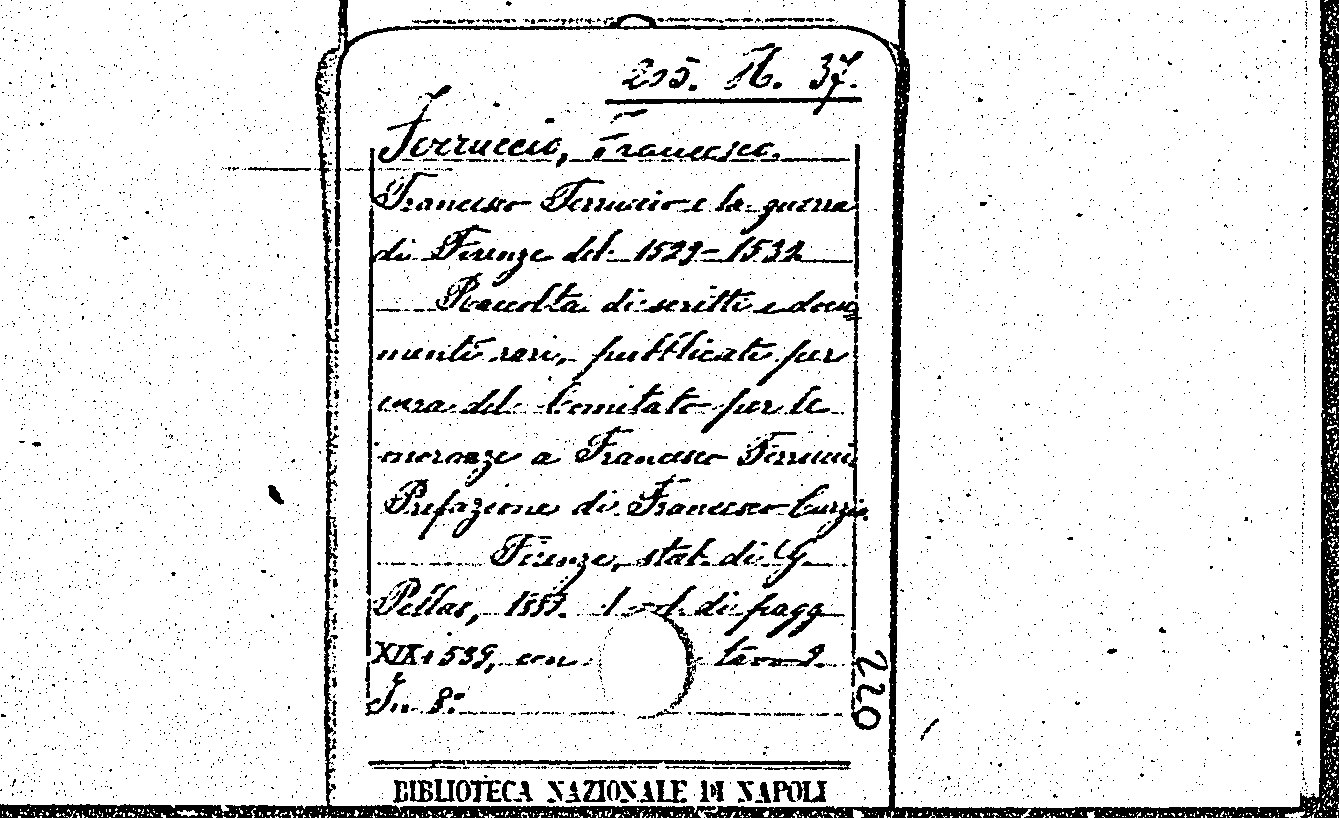 205. N. 37.
Ferruccio, Francesco.
Francesco Ferruccio e la guerra
di Firenze del 1529-1530
Raccolta di scritti e docu
menti rari, pubblicati per
cura del Comitato per le
onoranze a Francesco Ferrucci
Prefazione di Francesco Curzio
Firenze, stab. di G.
Pellas, 1889. 1 vol. di pagg
XIX+539, con tav.
In 8º
220
BIBLIOTECA NAZIONALE DI NAPOLI